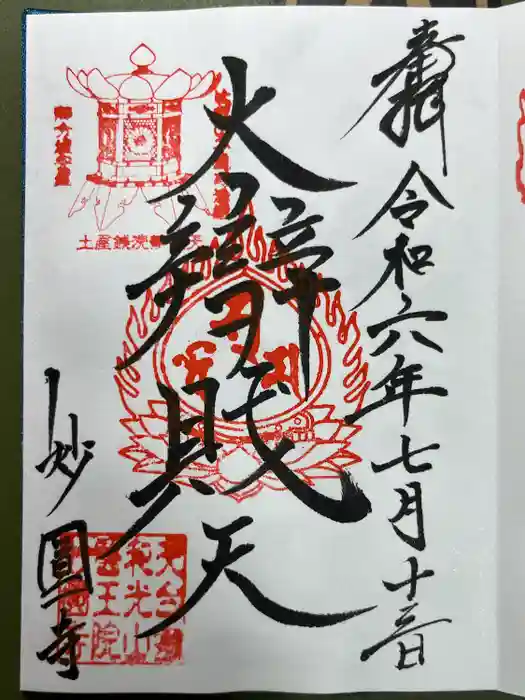 奉拝
令和六年七月十三日
大辯財天
土屋銭洗
妙圓寺
天台宗
和光山
醫王院
圓寺